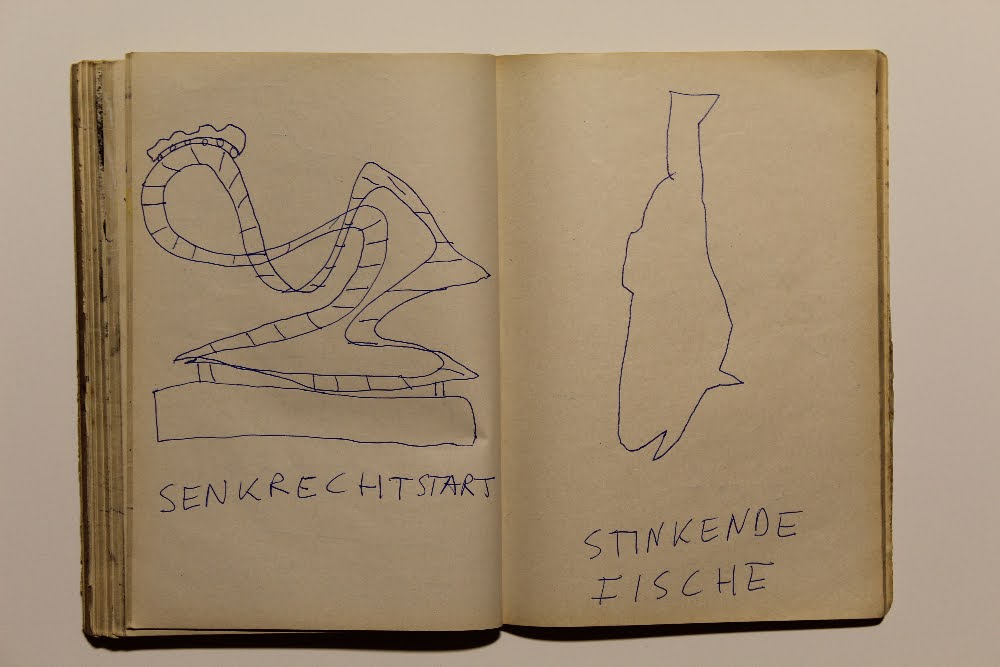 SENKRECHTSTART
STINKENDE
FISCHE